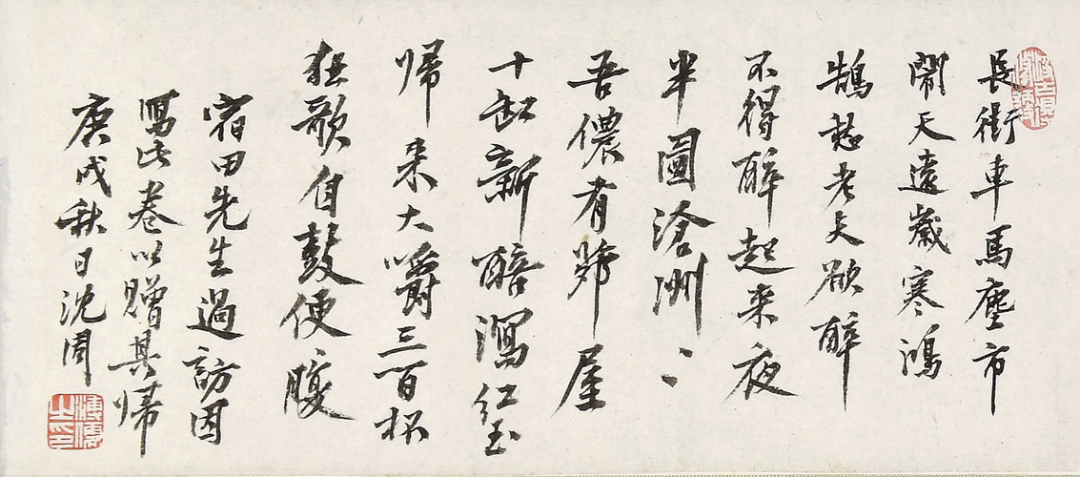 長車馬塵市
鬧天遠歲寒鴻
鵠愁老夫欲醉
不得醉起来夜
半圖滄洲〻
吾儂有弊屋
十缸新醅瀉紅玉
帰来大嚼三百杯
狂歌自鼓便〻腹
宿田先生過訪因
寫此卷以贈其帰
庚戌秋日沈周